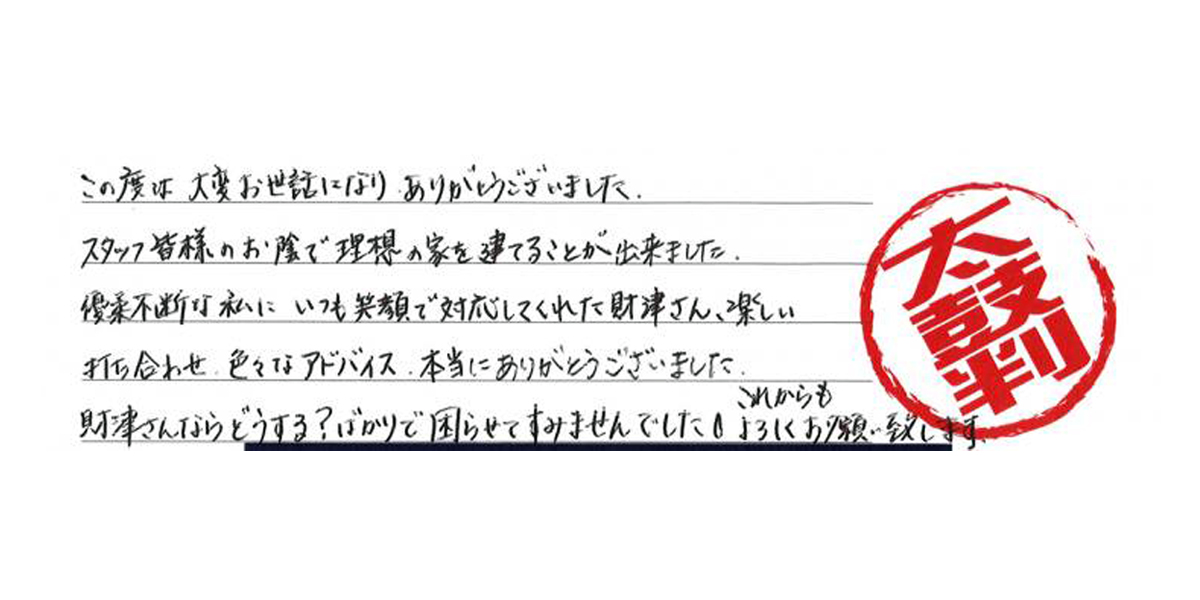 この度は 大変お世話になり ありがとうございました.
スタッフ皆様のお陰で理想の家を建てることが出来ました.
優柔不断な私に いつも笑顔で対応してくれた財津さん、楽しい
打ち合わせ. 色々なアドバイス. 本当にありがとうございました.
これからも
財津さんならどうする?ばかりで困らせてすみませんでした。よろしくお願い致します.
太鼓判